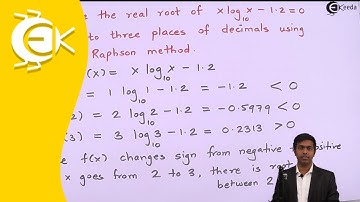 Ekeeda
e the real root of x log₁₀ x - 1.2 = 0
to three places of decimals using
Raphson method.
(x) = x log₁₀ x - 1.2
= 1 log₁₀ 1 - 1.2 = -1.2 < 0
2) = 2 log₁₀ 2 - 1.2 = -0.5979 < 0
(3) = 3 log₁₀ 3 - 1.2 = 0.2313 > 0
e f(x) changes sign from negative
x goes from 2 to 3, there is
between 2